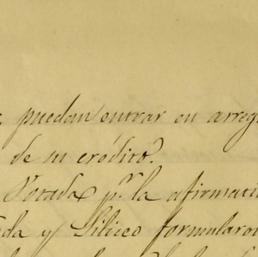 puedan entrar en arreg
de su crédito.
Votada pr. la afirmati
da y Sílico formularon